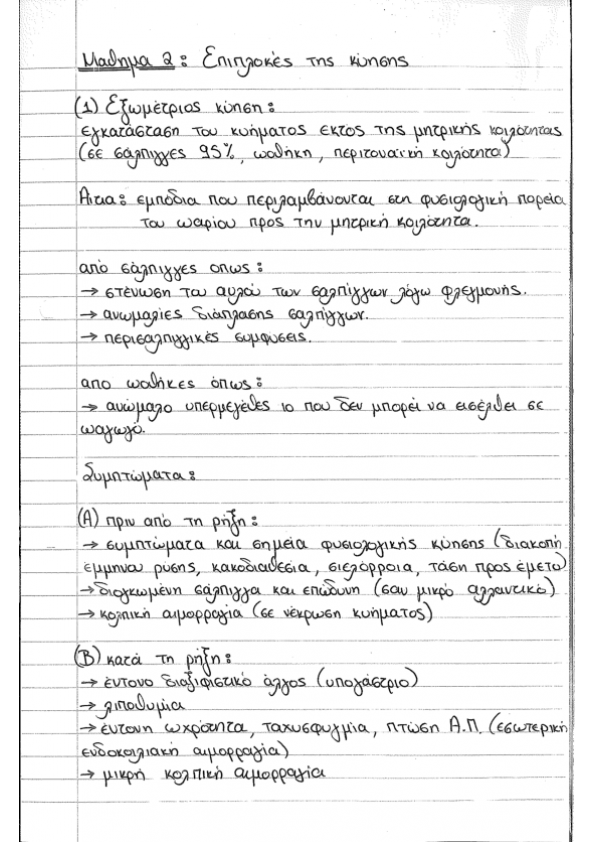 Μαθημα 2: Επιπλοκές της κύησης
(1) Εξωμέτριος κύηση:
εγκατάσταση του κυήματος εκτός της μητρικής κοιλότητας
(σε σάλπιγγες 95%, ωοθήκη, περιτοναϊκή κοιλότητα)
Αιτια: εμπόδια που περιλαμβάνονται στη φυσιολογική πορεία
του ωαρίου προς την μητρική κοιλότητα.
από σάλπιγγες οπως:
→ στένωση του αυλού των σαλπίγγων λόγω φλεγμονής.
→ ανωμαλίες διάπλασης σαλπίγγων.
→ περισαλπιγγικές συμφυσεις.
απο ωοθήκες όπως:
→ ανώμαλο υπερμεγέθες ιο που δεν μπορεί να εισέλθει σε
ωαγωγό.
Συμπτώματα:
(Α) πριν από τη ρήξη:
→ συμπτώματα και σημεία φυσιολογικής κύησης (διακοπή
έμμηνου ρύσης, κακοδιαθεσία, σιελόρροια, τάση προς έμετο)
→ διογκωμένη σάλπιγγα και επώδυνη (σαν μικρό αλλαντικό)
→ κολπική αιμορραγία (σε νέκρωση κυήματος)
(Β) κατά τη ρήξη:
→ έντονο διαξιφιστικό άλγος (υπογάστριο)
→ λιποθυμία
→ έντονη ωχρότητα, ταχυσφυγμία, πτώση Α.Π. (εσωτερική
ενδοκοιλιακή αιμορραγία)
→ μικρή κολπική αιμορραγία